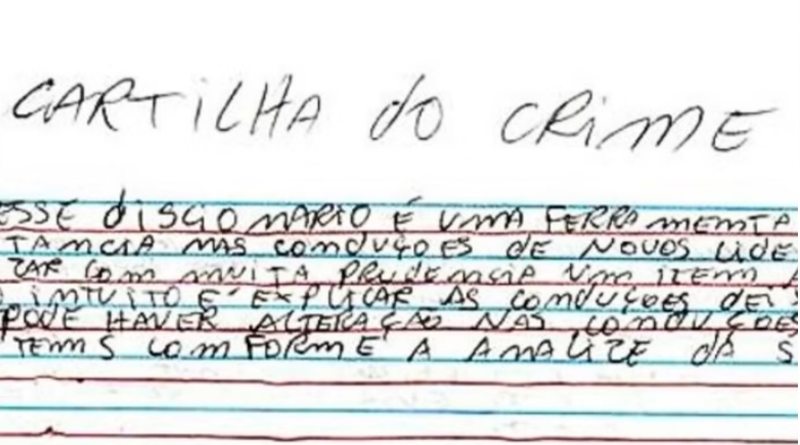 CARTILHA do CRIME
ESSE diSCIONARIO É UMA FERRAMENTA
TANCIA NAS CONDUÇOES DE NOVOS LIDE
ZAR COM MUITA PRUDENCIA UM ITEM A
INTUITO E' EXPLICAR AS CONDUÇOES DEIS
PODE HAVER ALTERAÇÃO NAS CONDUÇOES
TENS COMFORME A ANALIZE DA S